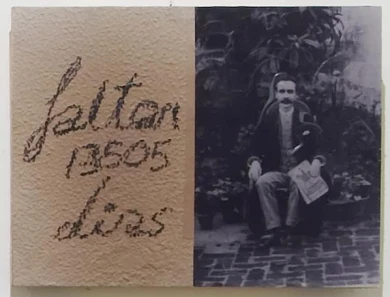 faltan
13505
días